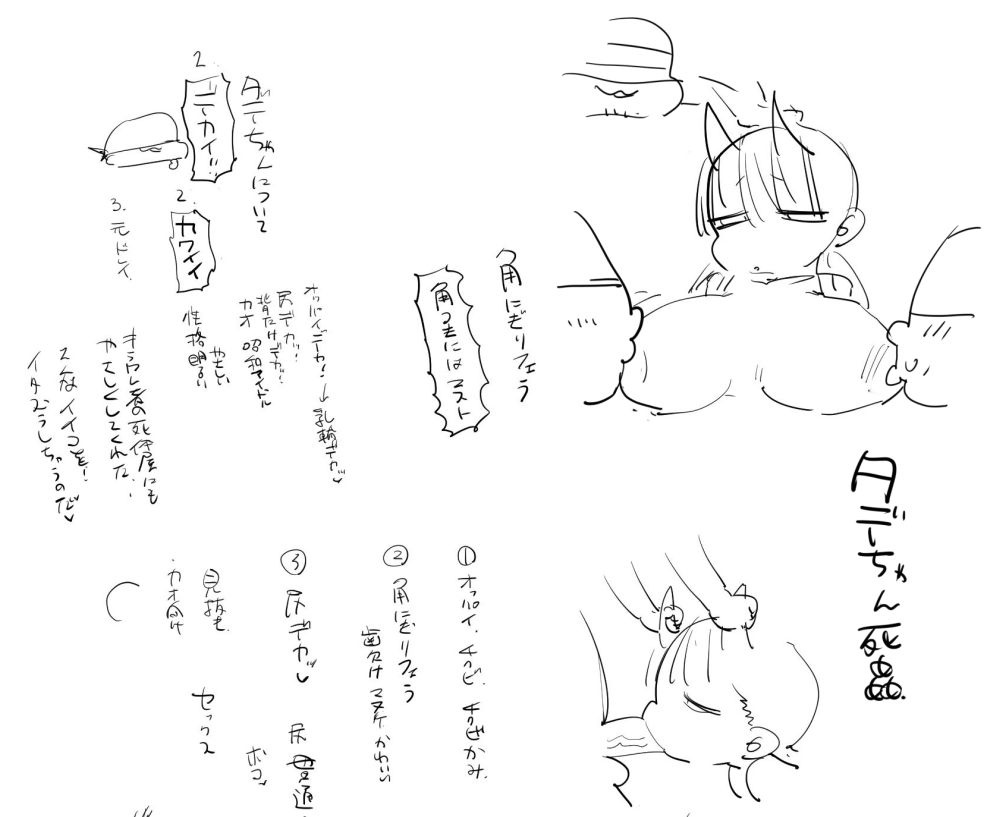 タデーちゃん死姦
角にぎりフェラ
角つきにはマスト
ダデちゃんについて
2.
デーカイ!!
2.
カワイイ
3. 元ドレイ
オッパイデーカ!→乳輪デカッ
尻デカッ!
背たけデカッ!
カオ 昭和アイドル
やさしい
性格明るい
キラワレ者の死体屋にも
やさしくしてくれた
こんなイイコを!
イタズラしちゃうのだ
① オッパイ、チクビ、
② 角にぎりフェラ
歯欠けマヌケかわいい
③ 尻デカッ
尻
通
ボコ
見抜き
セックス
・カオ向け